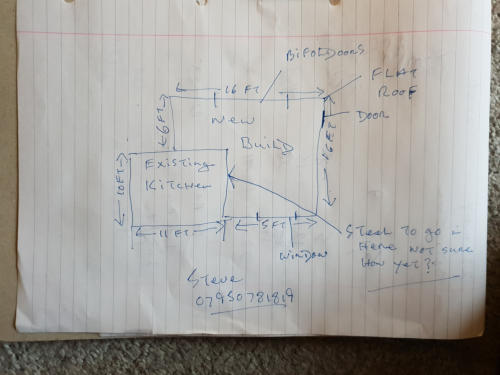 BiFold Doors
16 FT
FLAT
ROOF
6 FT
New
DOOR
Build
16 FT
Existing
Kitchen
10 FT
11 FT
5 FT
Window
Steel to go in
Here not sure
How yet?
Steve
07950781819